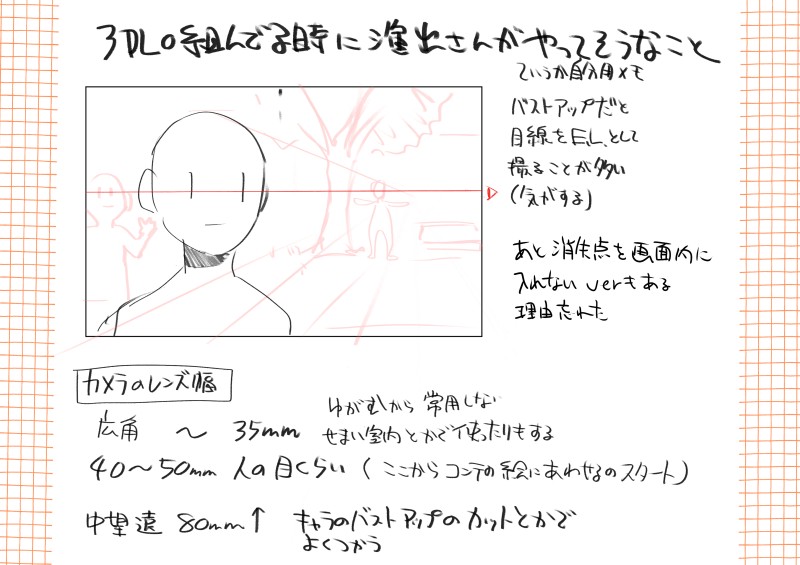 3DLO組んでる時に演出さんがやってそうなこと
ていうか自分用メモ
バストアップだと
目線をE.L.として
撮ることが多い
(気がする)
あと消失点を画面内に
入れないverもある
理由忘れた
カメラのレンズ幅
広角 〜 35mm
ゆがむから常用しない
せまい室内とかで使ったりもする
40〜50mm 人の目くらい (ここからコンテの絵にあわせるのスタート)
中望遠 80mm↑ キャラのバストアップのカットとかで
よくつかう